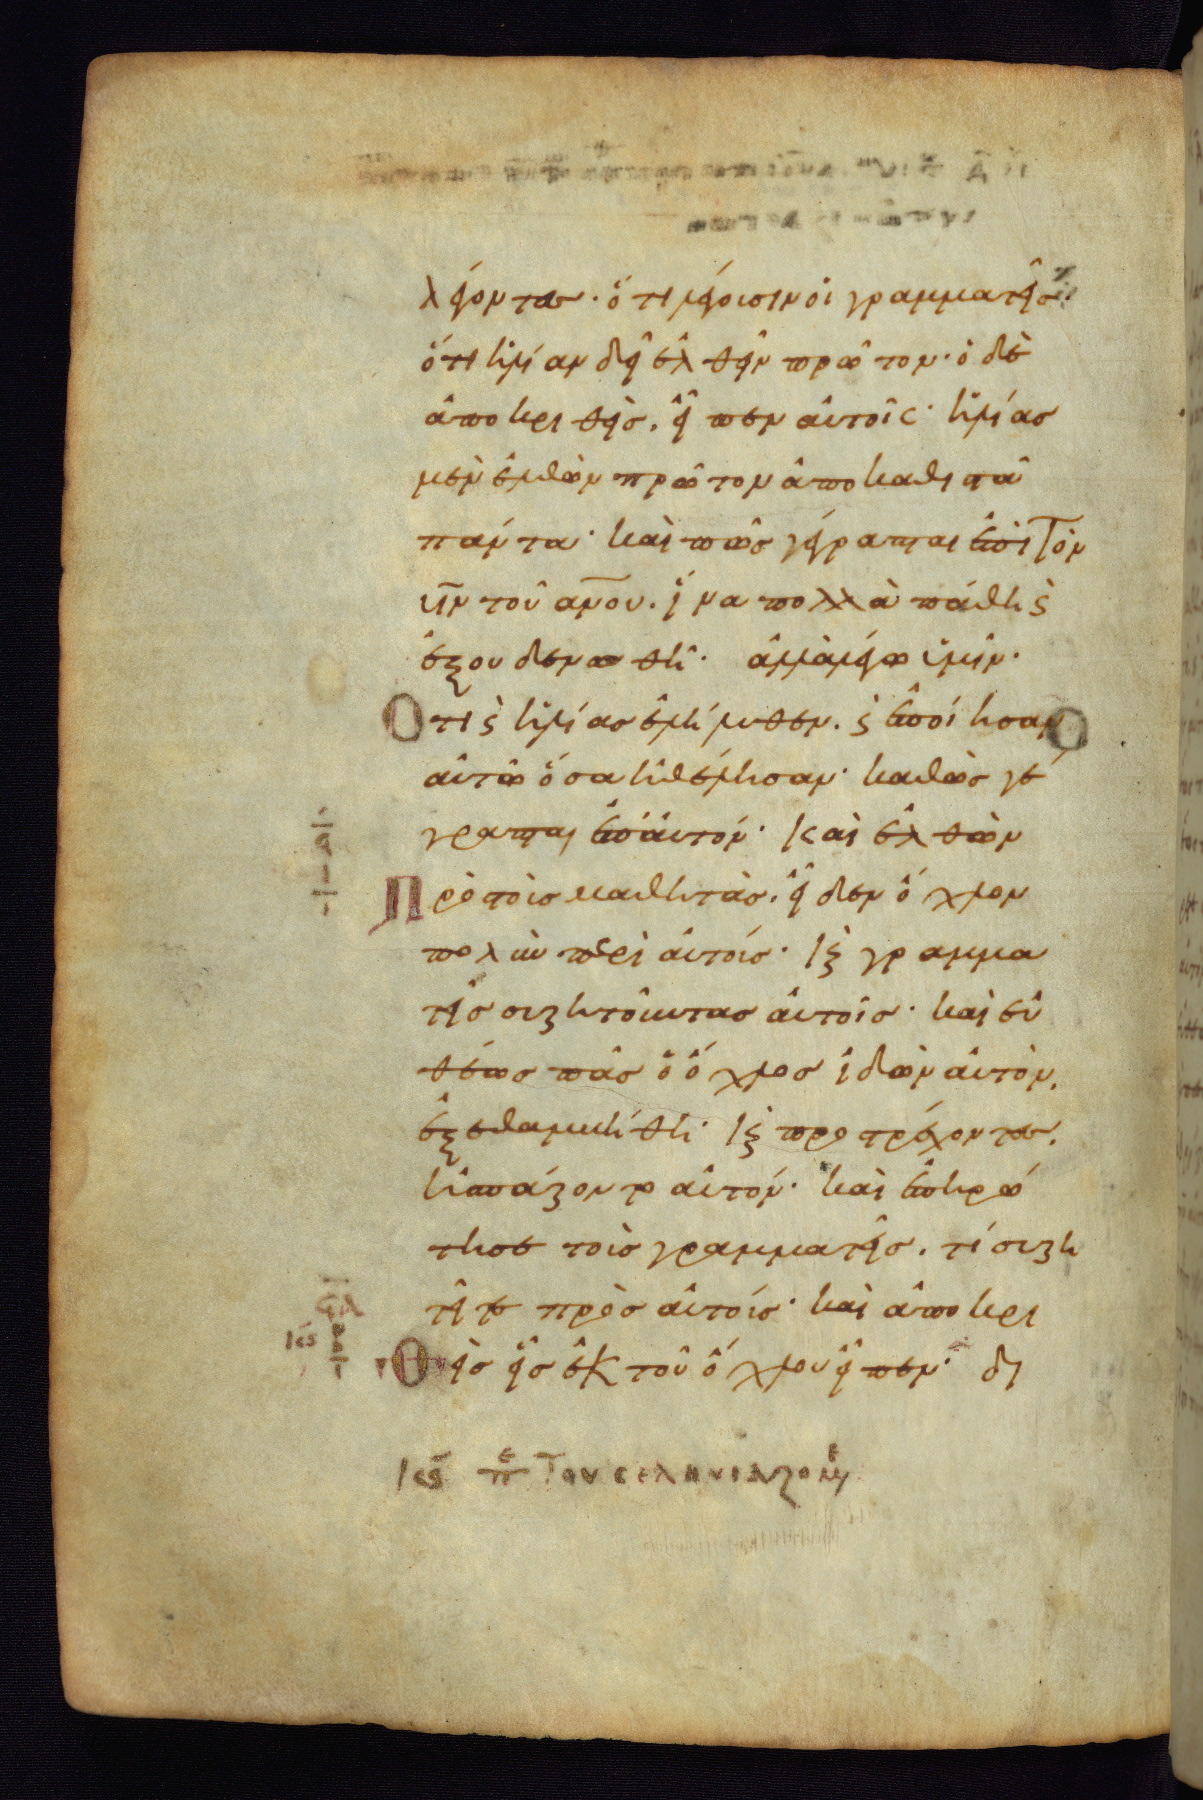 λέγοντες· ὅτι λέγουσιν οἱ γραμματεῖς
ὅτι ἠλίαν δεῖ ἐλθεῖν πρῶτον· ὁ δὲ
ἀποκριθεὶς, εἶπεν αὐτοῖς· ἠλίας
μὲν ἐλθὼν πρῶτον ἀποκαθιστᾶ
πάντα· καὶ πῶς γέγραπται ἐπὶ τὸν
ῡν τοῦ ᾱνου. ἵνα πολλὰ πάθη ϗ
ἐξουδενωθῆ· ἀλλὰ λέγω ὑμῖν·
Ὅτι ϗ ἠλίας ἐλήλυθεν. ϗ ἐποίησαν
αὐτῶ ὅσα ἠθέλησαν· καθὼς γέ
γραπται ἐπ' αὐτόν· Καὶ ἐλθὼν
Πρὸς τοὺς μαθητὰς, εἶδεν ὄχλον
πολὺν περὶ αὐτούς· ϗ γραμμα
τεῖς συζητοῦντας αὐτοῖς· καὶ εὐ
θέως πᾶς ὁ ὄχλος ἰδὼν αὐτὸν,
ἐξεθαμβήθη· ϗ προστρέχοντες,
ἠσπάζοντο αὐτόν· καὶ ἐπηρώ
τησε τοὺς γραμματεῖς. τί συζη
τεῖτε πρὸς αὐτούς· καὶ ἀποκρι
Θεὶς εἷς ἐκ τοῦ ὄχλου εἶπεν· δι
κε π τοῦ σεληνιαζομ